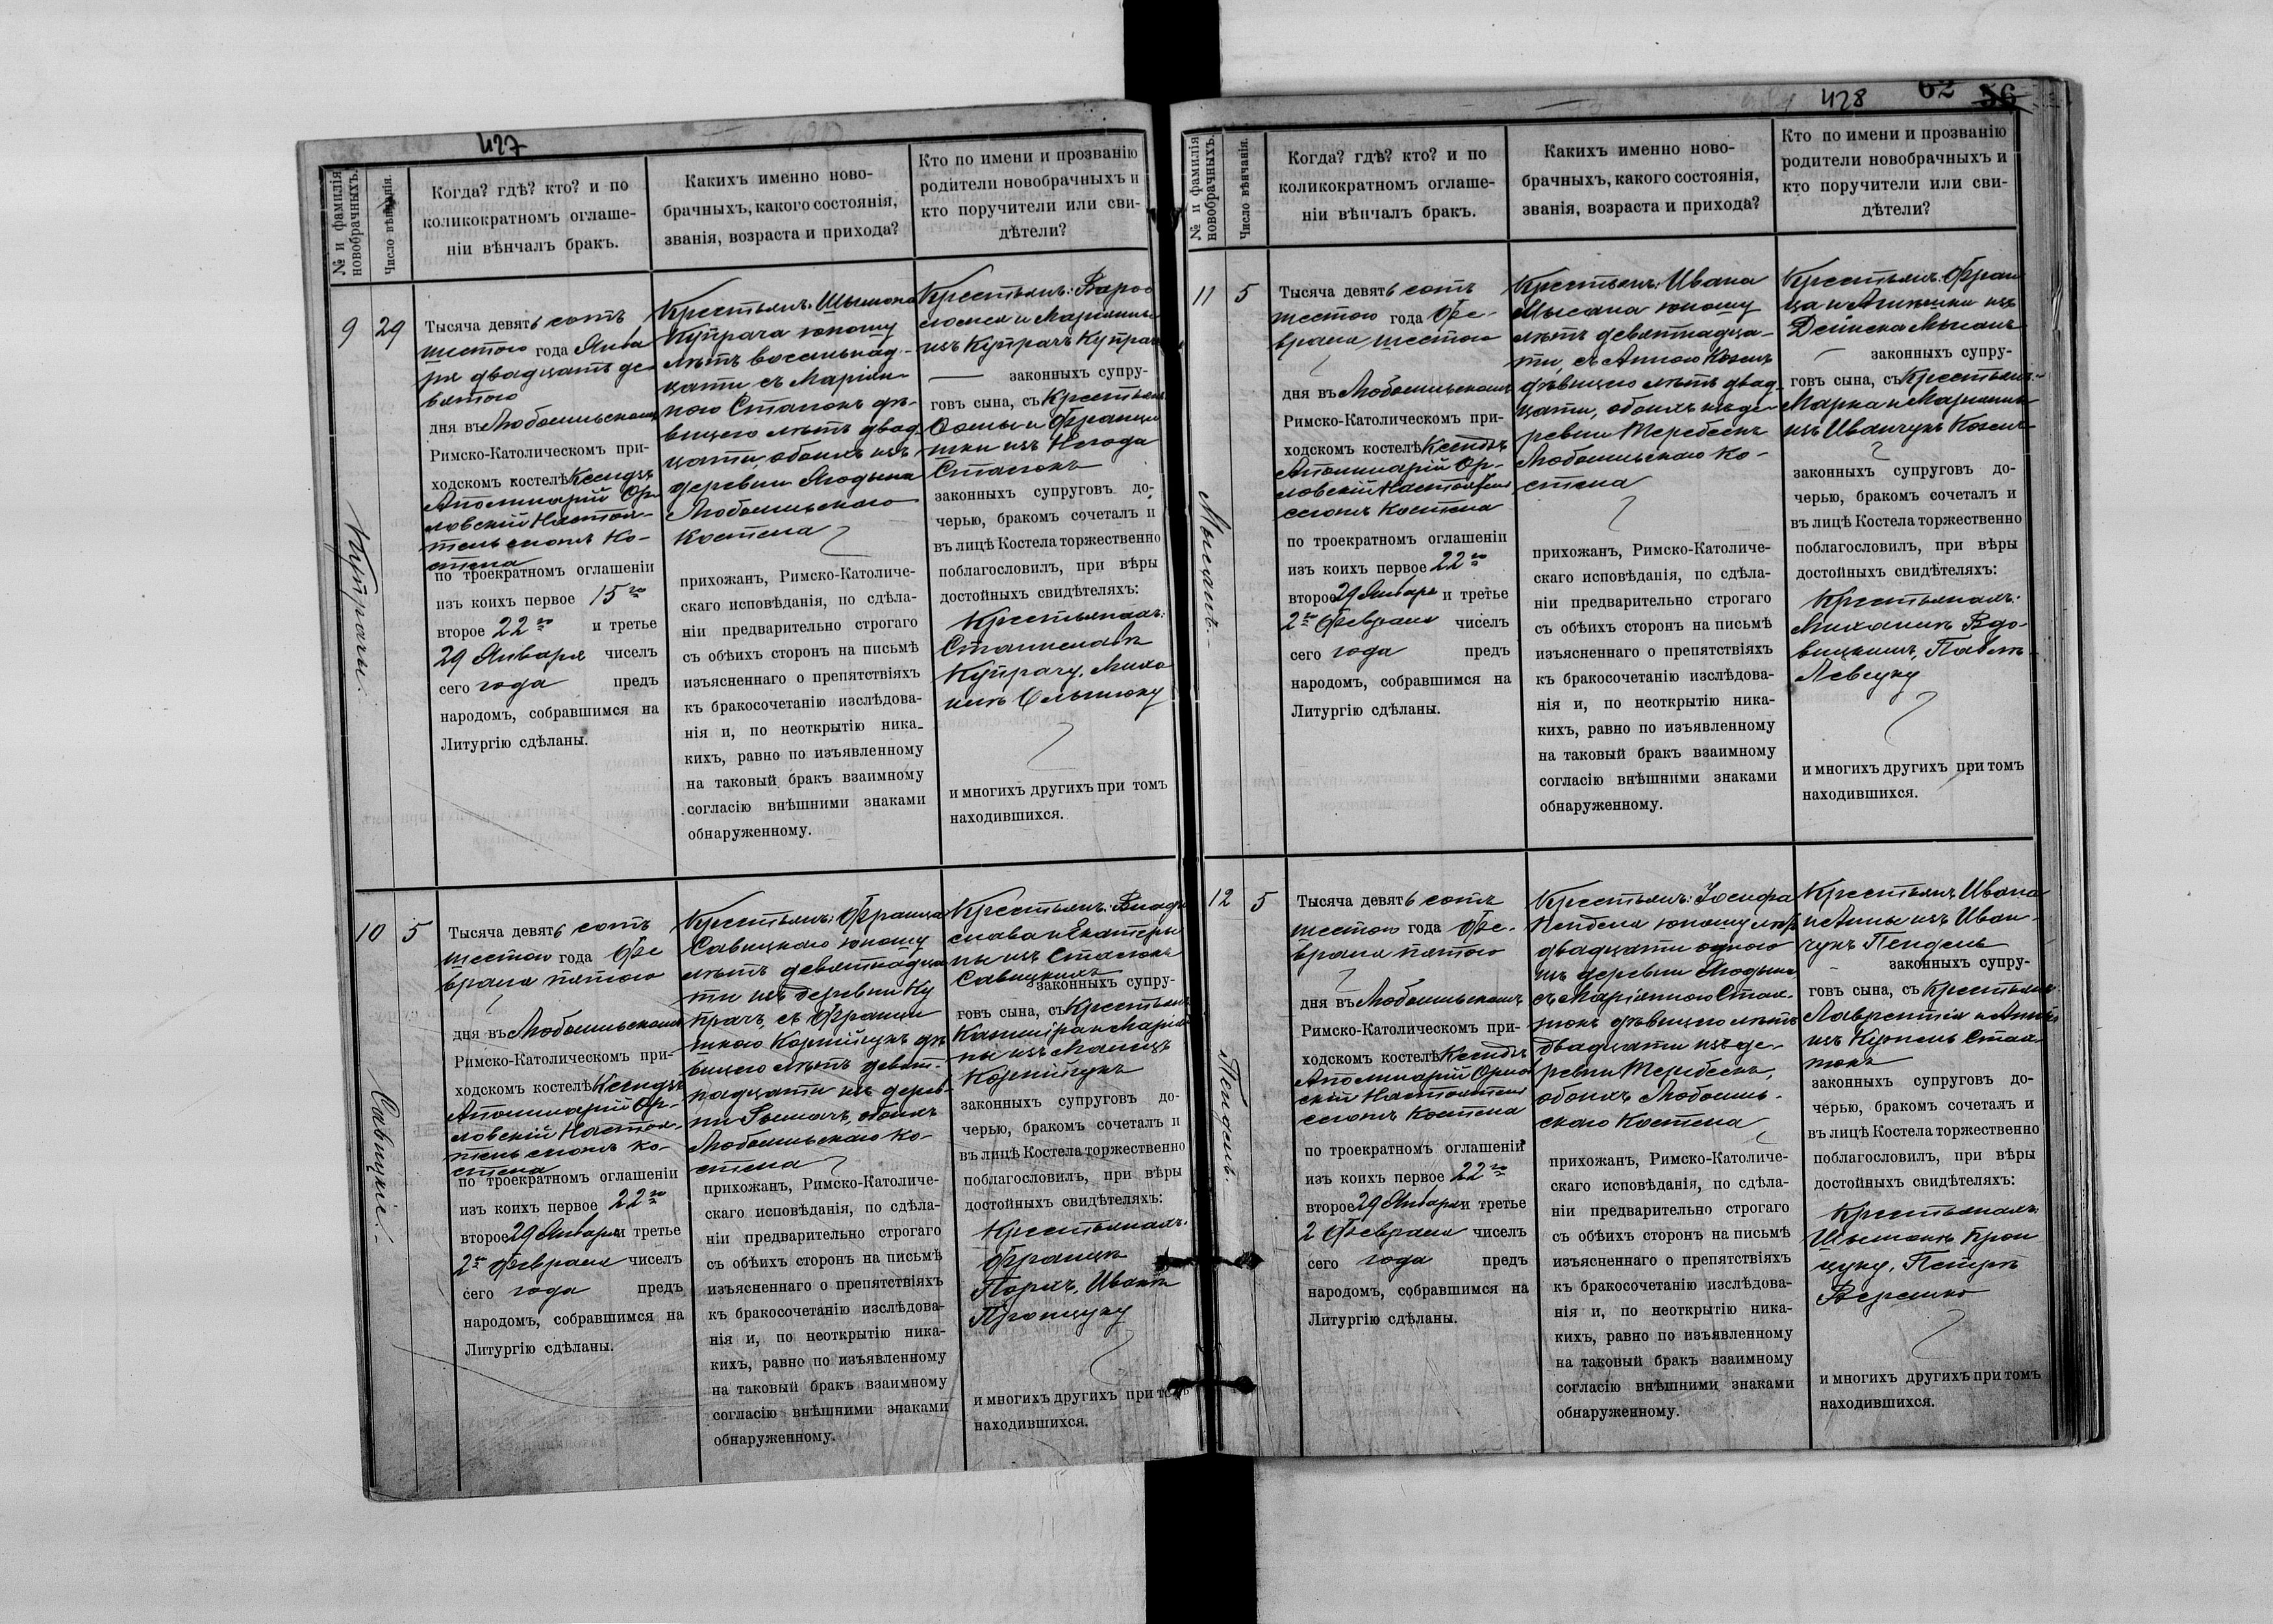 427
№ и фамилія новобрачныхъ.
Число вѣнчанія.
Когда? гдѣ? кто? и по
коликократномъ оглаше-
ніи вѣнчалъ бракъ.
Какихъ именно ново-
брачныхъ, какого состоянія,
званія, возраста и прихода?
Кто по имени и прозванію
родители новобрачныхъ и
кто поручители или сви-
дѣтели?
9
29
Купрачи.
Тысяча девятьсотъ
шестого года Янва
ря двадцать де
вятого
дня въ Любешъскомъ
Римско-Католическомъ при-
ходскомъ костелѣ Ксендзъ
Аполинарій Ор-
ловскій Настоя-
тель сего Ко-
стела
по троекратномъ оглашеніи
изъ коихъ первое 15го
второе 22го и третье
29 Января чиселъ
сего года предъ
народомъ, собравшимся на
Литургію сдѣланы.
Крестьянъ: Шымона
Купрача юношу
лѣтъ восемнад-
цати съ Маріян-
ною Стасюкъ дѣ-
вицею лѣтъ двад
цати, обоихъ изъ
деревни
костела
прихожанъ, Римско-Католиче-
скаго исповѣданія, по сдѣла-
ніи предварительно строгаго
съ обѣихъ сторонъ на письмѣ
изъясненнаго о препятствіяхъ
къ бракосочетанію изслѣдова-
нія и, по неоткрытію ника-
кихъ, равно по изъявленному
на таковый бракъ взаимному
согласію внѣшними знаками
обнаруженному.
Крестьянъ: Варѳо
ломея и Маріянны
изъ Купрачъ Купрач
законныхъ супру-
говъ сына, съ Крестьян
Ѳомы и Францы
шки изъ
Стасюкъ
законныхъ супруговъ до-
черью, бракомъ сочеталъ и
въ лицѣ Костела торжественно
поблагословилъ, при вѣры
достойныхъ свидѣтеляхъ:
Крестьянахъ:
Станиславѣ
Купрачу, Миха
илѣ
и многихъ другихъ при томъ
находившихся.
10
5
Савицкіе.
Тысяча девятьсотъ
шестого года Фе
враля пятого
дня въ Любешъскомъ
Римско-Католическомъ при-
ходскомъ костелѣ Ксендзъ
Аполинарій Ор-
ловскій Настоя-
тель сего Ко-
стела
по троекратномъ оглашеніи
изъ коихъ первое 22го
второе 29 Января и третье
2го Февраля чиселъ
сего года предъ
народомъ, собравшимся на
Литургію сдѣланы.
Крестьянъ: Франца
Савицкаго юношу
лѣтъ девятнадца
ти изъ деревни Ку
прачъ, съ Францы
шкою Корнійчукъ дѣ
вицею лѣтъ девят-
надцати изъ дерев
ни обоихъ
Ко-
стела
прихожанъ, Римско-Католиче-
скаго исповѣданія, по сдѣла-
ніи предварительно строгаго
съ обѣихъ сторонъ на письмѣ
изъясненнаго о препятствіяхъ
къ бракосочетанію изслѣдова-
нія и, по неоткрытію ника-
кихъ, равно по изъявленному
на таковый бракъ взаимному
согласію внѣшними знаками
обнаруженному.
Крестьянъ: Влади
слава и Екатери
ны изъ Стасюкъ
Савицкихъ
законныхъ супру-
говъ сына, съ Крестьян
Казиміра и Марія
ны изъ
Корнійчукъ
законныхъ супруговъ до-
черью, бракомъ сочеталъ и
въ лицѣ Костела торжественно
поблагословилъ, при вѣры
достойныхъ свидѣтеляхъ:
Крестьянахъ:
Францѣ
Иванѣ
и многихъ другихъ при томъ
находившихся.
428 62 56
№ и фамилія новобрачныхъ.
Число вѣнчанія.
Когда? гдѣ? кто? и по
коликократномъ оглаше-
ніи вѣнчалъ бракъ.
Какихъ именно ново-
брачныхъ, какого состоянія,
званія, возраста и прихода?
Кто по имени и прозванію
родители новобрачныхъ и
кто поручители или сви-
дѣтели?
11
5
Тысяча девятьсотъ
шестого года Фе-
враля шестого
дня въ Любешъскомъ
Римско-Католическомъ при-
ходскомъ костелѣ Ксендзъ
Аполинарій Ор-
ловскій Настоятель
сего Костела
по троекратномъ оглашеніи
изъ коихъ первое 22го
второе 29 Января и третье
2го Февраля чиселъ
сего года предъ
народомъ, собравшимся на
Литургію сдѣланы.
Крестьянъ: Ивана
юношу
лѣтъ девятнадца-
ти, съ Анною
дѣвицею лѣтъ двад
цати, обоихъ изъ де-
ревни Теребень
Ко-
стела
прихожанъ, Римско-Католиче-
скаго исповѣданія, по сдѣла-
ніи предварительно строгаго
съ обѣихъ сторонъ на письмѣ
изъясненнаго о препятствіяхъ
къ бракосочетанію изслѣдова-
нія и, по неоткрытію ника-
кихъ, равно по изъявленному
на таковый бракъ взаимному
согласію внѣшними знаками
обнаруженному.
Крестьянъ: Фран
ца и изъ
законныхъ супру-
говъ сына, съ Крестьян-
Марка и Маріянны
изъ Иванчукъ
законныхъ супруговъ до-
черью, бракомъ сочеталъ и
въ лицѣ Костела торжественно
поблагословилъ, при вѣры
достойныхъ свидѣтеляхъ:
Крестьянахъ:
Михаилѣ Вдо-
вицкимъ, Павлѣ
Левчуку
и многихъ другихъ при томъ
находившихся.
12
5
Пендель.
Тысяча девятьсотъ
шестого года Фе-
враля пятого
дня въ Любешъскомъ
Римско-Католическомъ при-
ходскомъ костелѣ Ксендзъ
Аполинарій Орлов
скій Настоятель
сего Костела
по троекратномъ оглашеніи
изъ коихъ первое 22го
второе 29 Января и третье
2 Февраля чиселъ
сего года предъ
народомъ, собравшимся на
Литургію сдѣланы.
Крестьянъ: Іосифа
Пенделя юношу лѣт
двадцати одного
изъ деревни
съ Маріянною
дѣвицею лѣтъ
двадцати изъ де-
ревни Теребень,
обоихъ
скаго Костела
прихожанъ, Римско-Католиче-
скаго исповѣданія, по сдѣла-
ніи предварительно строгаго
съ обѣихъ сторонъ на письмѣ
изъясненнаго о препятствіяхъ
къ бракосочетанію изслѣдова-
нія и, по неоткрытію ника-
кихъ, равно по изъявленному
на таковый бракъ взаимному
согласію внѣшними знаками
обнаруженному.
Крестьянъ Ивана
и Анны изъ Иван-
чукъ Пендель
законныхъ супру-
говъ сына, съ Крестьян
Лаврентія и Анны
изъ
законныхъ супруговъ до-
черью, бракомъ сочеталъ и
въ лицѣ Костела торжественно
поблагословилъ, при вѣры
достойныхъ свидѣтеляхъ:
Крестьянахъ:
Шымонѣ
Петрѣ
и многихъ другихъ при томъ
находившихся.